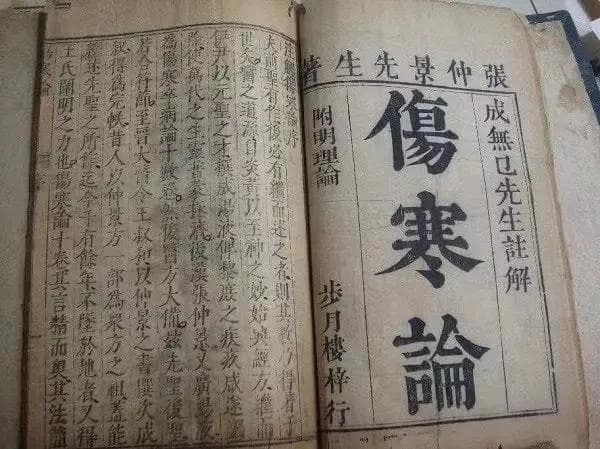 張仲景先生著
成無已先生註解
傷寒論
附明理論
步月樓梓行
註解傷寒論序
夫前聖有作後必有繼而述之者則其教乃得著于
世矣醫之道源自炎黄以至神之妙始興經方繼而
伊尹以元聖之才撰成湯液俾黎庶之疾疢咸遂蠲
除使萬代之生靈普蒙拯濟後漢張仲景又廣湯液
為傷寒卒病論十數卷然後醫方大備兹先聖後聖
若合符節至晉太醫令王叔和以仲景之書撰次成
叙得為完帙昔人以仲景方一部為衆方之祖蓋能
繼述先聖之所作迄今千有餘年不墜於地者又得
王氏闡明之力也傷寒論十卷其言精而奥其法簡